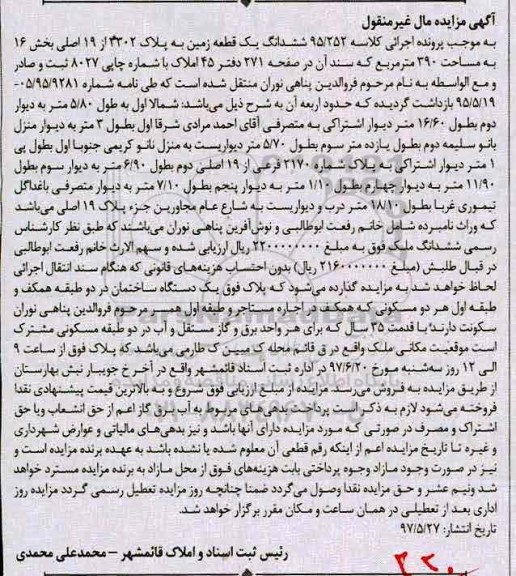 آگهی مزایده مال غیرمنقول
به موجب پرونده اجرائی کلاسه ۹۵/۲۵۲ ششدانگ یک قطعه زمین به پلاک ۴۳۰۲ از ۱۹ اصلی بخش ۱۶
به مساحت ۳۹۰ مترمربع که سند آن در صفحه ۲۷۱ دفتر ۴۵ املاک با شماره چاپی ۸۰۲۷ ثبت و صادر
و مع الواسطه به نام مرحوم فروالدین پناهی نوران منتقل شده است که طی نامه شماره ۰۵/۹۵/۹۲۸۱-
۹۵/۵/۱۹ بازداشت گردیده که حدود اربعه آن به شرح ذیل می‌باشد: شمالا اول به طول ۵/۸۰ متر به دیوار
دوم بطول ۱۶/۶۰ متر دیوار اشتراکی به متصرفی آقای احمد مرادی شرقا اول بطول ۳ متر به دیوار منزل
بانو سلیمه دوم بطول یازده متر سوم بطول ۵/۷۰ متر دیواریست به منزل بانو کریمی جنوبا اول بطول پی
۱ متر دیوار اشتراکی به پلاک شماره ۲۱۷۰ فرعی از ۱۹ اصلی دوم بطول ۶/۹۰ متر به دیوار سوم بطول
۱۱/۹۰ متر به دیوار چهارم بطول ۱/۱۰ متر به دیوار پنجم بطول ۷/۱۰ متر به دیوار متصرفی باغداگل
تیموری غربا بطول ۱۸/۱۰ متر درب و دیواریست به شارع عام مجاورین جزء پلاک ۱۹ اصلی می‌باشد
که وراث نامبرده شامل خانم رفعت ابوطالبی و نوش‌آفرین پناهی نوران می‌باشند که طبق نظر کارشناس
رسمی ششدانگ ملک فوق به مبلغ ۲۲۰۰۰۰۰۰۰۰ ریال ارزیابی شده و سهم الارث خانم رفعت ابوطالبی
در قبال طلبش (مبلغ ۲۱۶۰۰۰۰۰۰۰ ریال) بدون احتساب هزینه‌های قانونی که هنگام سند انتقال اجرائی
لحاظ خواهد شد به مزایده گذارده می‌شود که پلاک فوق یک دستگاه ساختمان در دو طبقه همکف و
طبقه اول هر دو مسکونی که همکف در اجاره مستاجر و طبقه اول همسر مرحوم فروالدین پناهی نوران
سکونت دارند؛ با قدمت ۳۵ سال که برای هر واحد برق و گاز مستقل و آب در دو طبقه مسکونی مشترک
است موقعیت مکانی ملک واقع در ق قائم محله کتسین ک طارمی می‌باشد که پلاک فوق از ساعت ۹
الی ۱۲ روز سه‌شنبه مورخ ۹۷/۶/۲۰ در اداره ثبت اسناد قائمشهر واقع در آخر خ جویبار نبش بهارستان
از طریق مزایده به فروش می‌رسد مزایده از مبلغ ارزیابی فوق شروع و به بالاترین قیمت پیشنهادی نقدا
فروخته می‌شود لازم به ذکر است پرداخت بدهی‌های مربوط به آب برق گاز اعم از حق انشعاب ویا حق
اشتراک و مصرف در صورتی که مورد مزایده دارای آنها باشد و نیز بدهی‌های مالیاتی و عوارض شهرداری
و غیره تا تاریخ مزایده اعم از اینکه رقم قطعی آن معلوم شده یا نشده باشد به عهده برنده مزایده است و
نیز در صورت وجود مازاد وجوه پرداختی بابت هزینه‌های فوق از محل مازاد به برنده مزایده مسترد خواهد
شد ونیم عشر و حق مزایده نقدا وصول می‌گردد ضمنا چنانچه روز مزایده تعطیل رسمی گردد مزایده روز
اداری بعد از تعطیلی در همان ساعت و مکان مقرر برگزار خواهد شد.
تاریخ انتشار: ۹۷/۵/۲۷
رئیس ثبت اسناد و املاک قائمشهر – محمدعلی محمدی